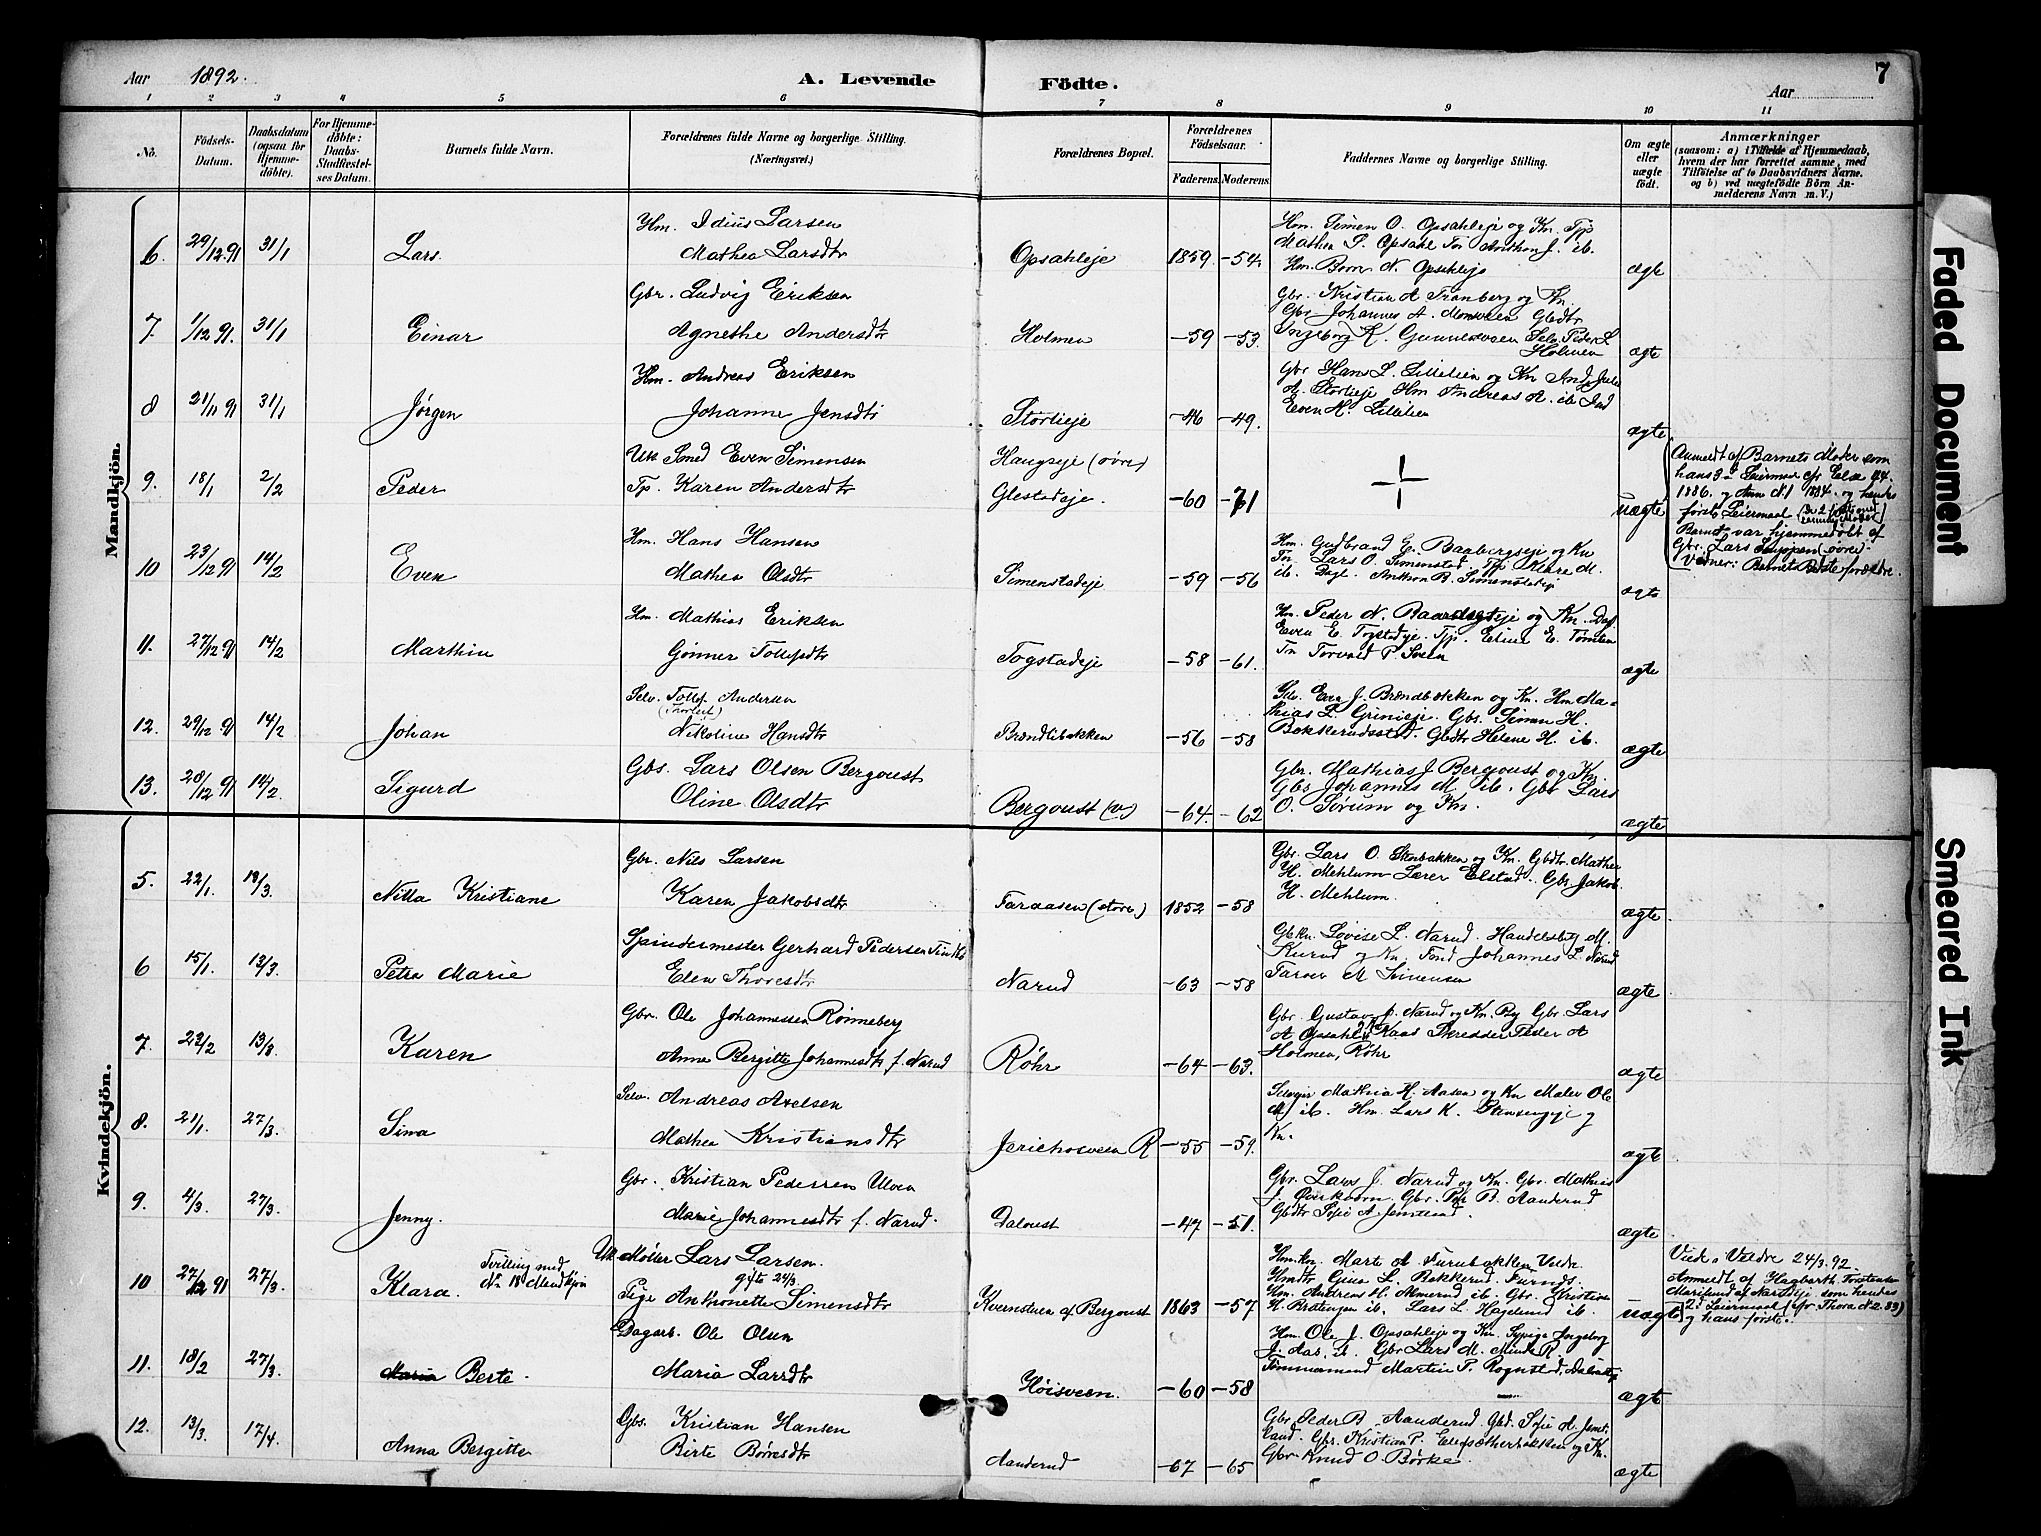 Aar 1892.
A. Levende
Födte.
7
Aar
1 2 3 4 5 6 7 8 9 10 11
No.
Födsels-
Datum.
Daabsdatum
(ogsaa for
Hjemme-
döbte).
For Hjemme-
döbte:
Daabs-
Stadfæstel-
ses Datum.
Barnets fulde Navn.
Forældrenes fulde Navne og borgerlige Stilling.
(Næringsvei.)
Forældrenes Bopæl.
Forældrenes
Födselsaar.
Faderens. Moderens.
Faddernes Navne og borgerlige Stilling.
Om ægte
eller
uægte
födt.
Anmærkninger
(saasom: a) i Tilfælde af Hjemmedaab,
hvem der har forrettet samme, med
Tilføielse af to Daabsvidners Navne.
og b) ved uægtefödte Börn An-
melderens Navn m. V.)
Mandkjön.
6 29/12 91 31/1 Lars.
Hm. Idius Larsen
Mathea Larsdtr
Opsahleje 1859 -54
Hm. Simen O. Opsahleje og Kn. Tp
Mathea L. Opsahl Tn Anthon J. ib.
Hm. Born N. Opsahleje
ægte
7. 1/12 91. 31/1 Einar
Gbr. Ludvig Eriksen
Agnethe Andersdtr
Holmen -59 -53.
Gbr. Kristian A Tranberg og Kn.
Gbr Johannes A. Gbdtr
Ingeborg K. Selv. Peder L
Holmen
ægte
8 21/11 91 31/1 Jørgen
Hm. Andreas Eriksen
Johanne Jensdtr
Storlieje -46 -49.
Gbr Hans L. Lillelien og Kn
A. Storlieje Hm Andreas A. ib
Even H. Lillelien
ægte
9. 18/1 2/2 Peder
Uk Smed Even Simensen
Tp. Karen Andersdtr
Haugseje (øvre)
Glestadeje. -60 -71
uægte
Anmeldt af Barnets Moder som
hans 3die Leiermaal cfr Else
1886. og Anna N.1 1884. og hendes
første Leiermaal
Barnet var hjemmedøbt af
Gbr. Lars (øvre)
Vidner: Barnets Bedsteforældre.
10 23/12 91 14/2 Even
Hm. Hans Hansen
Mathea Olsdtr
Simenstadeje -59 -56
Hm. Gudbrand G. Baabergseje og Kn
Tn Lars O. Simenstad Tp. Klara M.
ib. Dagl. Anthon B. Simenstadeje
ægte
11. 27/12 91 14/2 Marthin
Hm. Mathias Eriksen
Gønner Tollefsdtr
Togstadeje -58 -61.
Hm. Peder N. Baardseteje og Kn.
Even E. Togstadeje. Tp. Eline E.
Tn Torvald P. Sveen
ægte
12. 29/12 91 14/2 Johan
Selv. Tollef Andersen
(Thorleif)
Nikoline Hansdtr
Brændlibakken -56 -58
Selv. Even J. Brændbakken og Kn. Hm Ma-
thias L. Grinieje. Gbs. Simen H.
Bakkerudsstad. Gbdtr Helene H. ib.
ægte
13. 28/12 91 14/2. Sigurd
Gbs. Lars Olsen Bergoust
Oline Olsdtr
Bergoust -64. -62
Gbr. Mathias J Bergoust og Kn.
Gbs Johannes M. ib. Gbr Lars
O. Sørum og Kn.
ægte
Kvindekjön.
5. 22/1. 13/3. Nilla Kristiane
Gbr. Nils Larsen
Karen Jakobsdtr
Taraasen (store) 1852 -58
Gbr. Lars O. Stenbakken og Kn. Gbdtr. Mathea
H. Mehlum Lærer Elstad. Gbs Jakob
H. Mehlum.
ægte
6 15/1. 13/3. Petra Marie
Spindemester Gerhard Pedersen
Elen Thoresdtr
Narud -63 -58
Gbkn. Lovise L. Narud. Handelsbtj M.
Kurud og Kn. Johannes L. Narud
Farver M Simensen
ægte
7. 22/2 13/3 Karen
Gbr. Ole Johannessen Rønneberg
Anne Bergitte Johannesdtr f. Narud
Røhr -64 -63.
Gbr Gustav J. Narud og Kn. Gbr Lars
A Opsahl Skredder Peder A
Holmen, Røhr
ægte
8. 21/1. 27/3. Sina
Selv. Andreas Axelsen
Mathea Kristiansdtr
Jerichosveen R -55 -59.
Mathias H. Aasen og Kn Maler Ole
M ib. Hm. Lars K. og
Kn.
ægte
9. 4/3. 27/3. Jenny.
Gbr. Kristian Pedersen Ulven
Marie Johannesdtr f. Narud.
Daloust -47 -51.
Gbr. Lars J. Narud og Kn. Gbr. Mathias
J. Gbr. Peder B. Aanderud
Gbdtr Sofie A. Jemtland.
ægte
10 27/12 91 27/3. Klara.
Tvilling med
No 18 Mandkjøn
Uk Møller Lars Larsen.
gift 24/3.
Pige Anthonette Simensdtr
Kvernstuen af Bergoust 1863 -57
Hm.kn. Marte A Furubakken Veldre
Hmdtr Gina L. Bakkerud. Furnæs.
Hm. Andreas H. Almerud ib. Gbr. Kristian
H. ib. Lars L. Hagelund ib.
uægte
Viede i Veldre 24/3 92.
Anmeldt af Hagbarth Tostensen
Marilund af Narudeje som hendes
2d Leiermaal (cfr Thora N 2. 83)
og hans første.
11. 18/2 27/3. Maria Berte.
Dagarb. Ole Olsen
Maria Larsdtr
Høisveen. -60 -58
Hm. Ole J. Opsahleje og Kn. Sypige Ingeborg
J. Aas. Gbr Lars M. Minde R.
Tømmermand Martin P. Rognstad,
ægte
12. 13/3. 17/4. Anna Bergitte
Gbs. Kristian Hansen
Birte Børresdtr
Aanderud -67 -65
Gbr Peder B. Aanderud. Gbd. Sofie A. Jemt-
land. Gbr. Kristian P. og Kn.
Gbr Knud O. Børke.
ægte
Faded Document
Smeared Ink